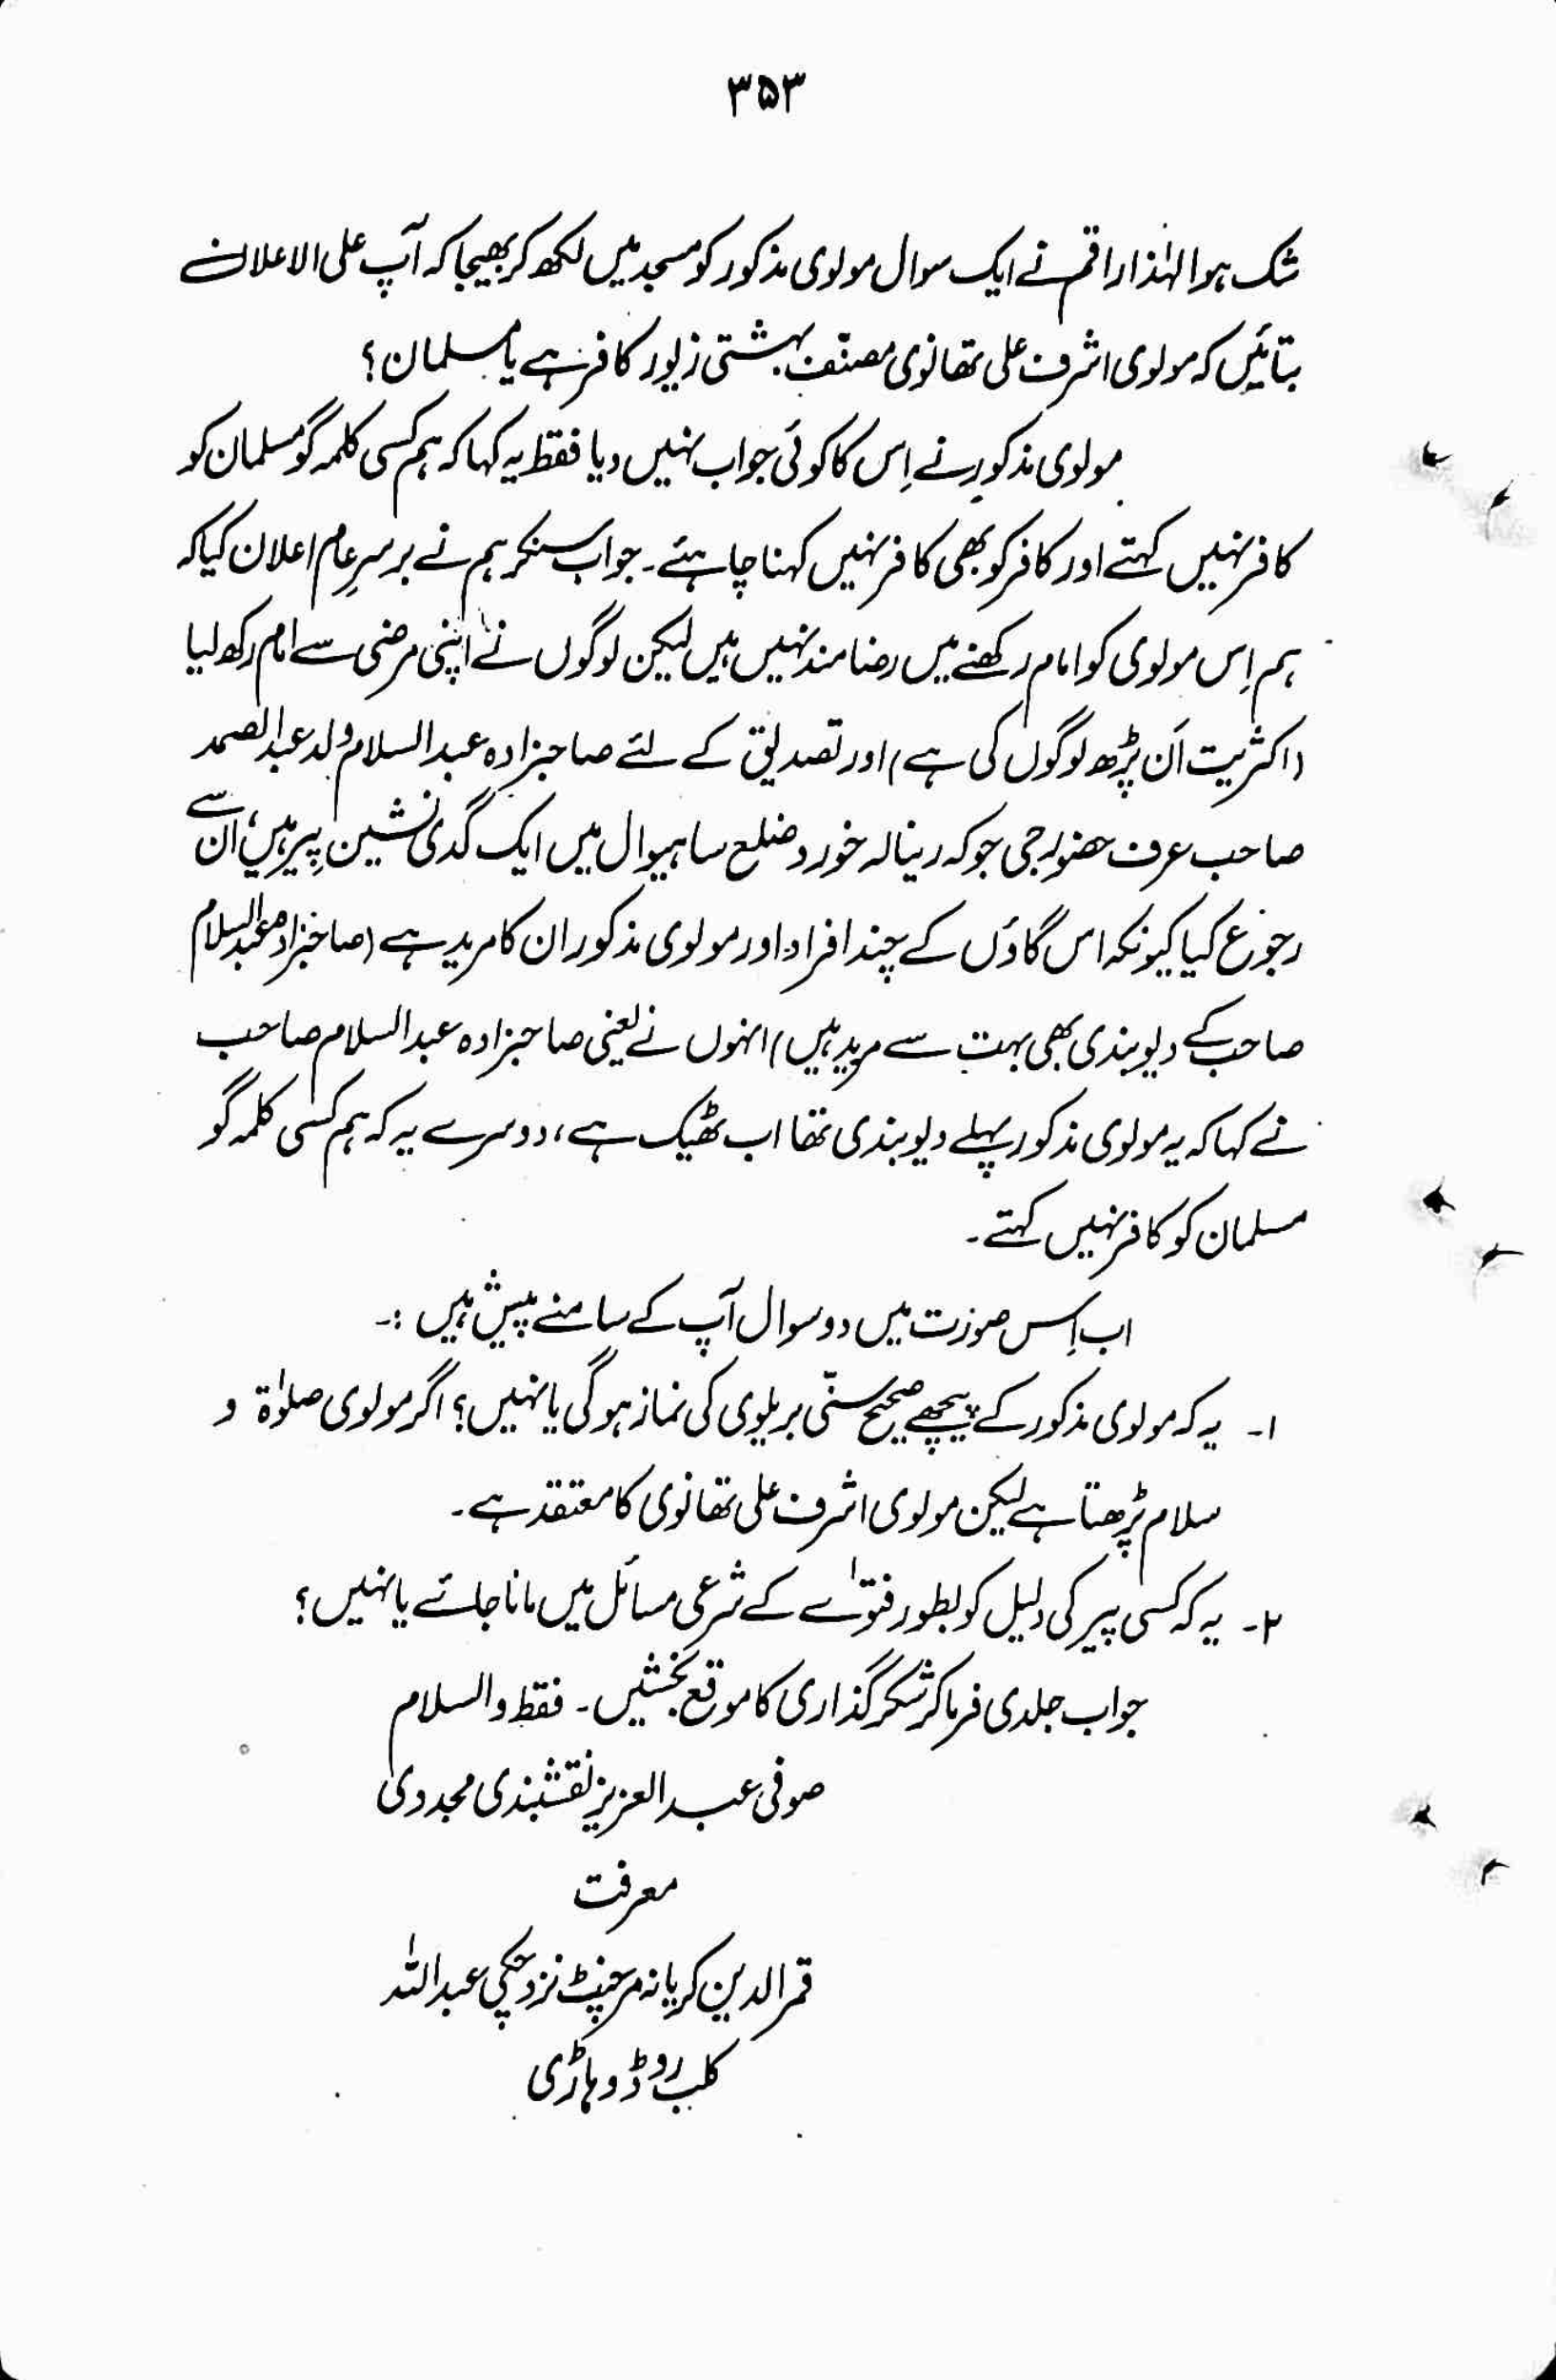 ۳۵۳
شک ہوا لہٰذا راقم نے ایک سوال مولوی مذکور کو مسجد میں لکھ کر بھیجا کہ آپ علی الاعلان
بتائیں کہ مولوی اشرف علی تھانوی مصنّف بہشتی زیور کافر ہے یا مسلمان؟
مولوی مذکور نے اِس کا کوئی جواب نہیں دیا فقط یہ کہا کہ ہم کسی کلمہ گو مسلمان کو
کافر نہیں کہتے اور کافر کو بھی کافر نہیں کہنا چاہئے۔ جواب سنکر ہم نے برسرِ عام اعلان کیا کہ
ہم اِس مولوی کو امام رکھنے میں رضامند نہیں ہیں لیکن لوگوں نے اپنی مرضی سے امام رکھ لیا
(اکثریت اَن پڑھ لوگوں کی ہے) اور تصدیق کے لئے صاحبزادہ عبدالسلام ولد عبدالصمد
صاحب عرف حضور جی جو کہ رینالہ خورد ضلع ساہیوال میں ایک گدی نشین پیر ہیں، ان سے
رجوع کیا کیونکہ اس گاؤں کے چند افراد اور مولوی مذکور ان کا مرید ہے (صاحبزادہ عبدالسلام
صاحب کے دیوبندی بھی بہت سے مرید ہیں) انہوں نے یعنی صاحبزادہ عبدالسلام صاحب
نے کہا کہ یہ مولوی مذکور پہلے دیوبندی تھا اب ٹھیک ہے، دوسرے یہ کہ ہم کسی کلمہ گو
مسلمان کو کافر نہیں کہتے۔
اب اِس صورت میں دو سوال آپ کے سامنے پیش ہیں :۔
۱۔ یہ کہ مولوی مذکور کے پیچھے صحیح سنّی بریلوی کی نماز ہو گی یا نہیں؟ اگر مولوی صلوٰۃ و
سلام پڑھتا ہے لیکن مولوی اشرف علی تھانوی کا معتقد ہے۔
۲۔ یہ کہ کسی پیر کی دلیل کو بطور فتوٰے کے شرعی مسائل میں مانا جائے یا نہیں؟
جواب جلدی فرما کر شکرگذاری کا موقع بخشیں۔ فقط والسلام
صوفی عبدالعزیز نقشبندی مجددی
معرفت
قمرالدین کریانہ مرچنٹ نزد چکی عبداللہ
کلب روڈ وہاڑی